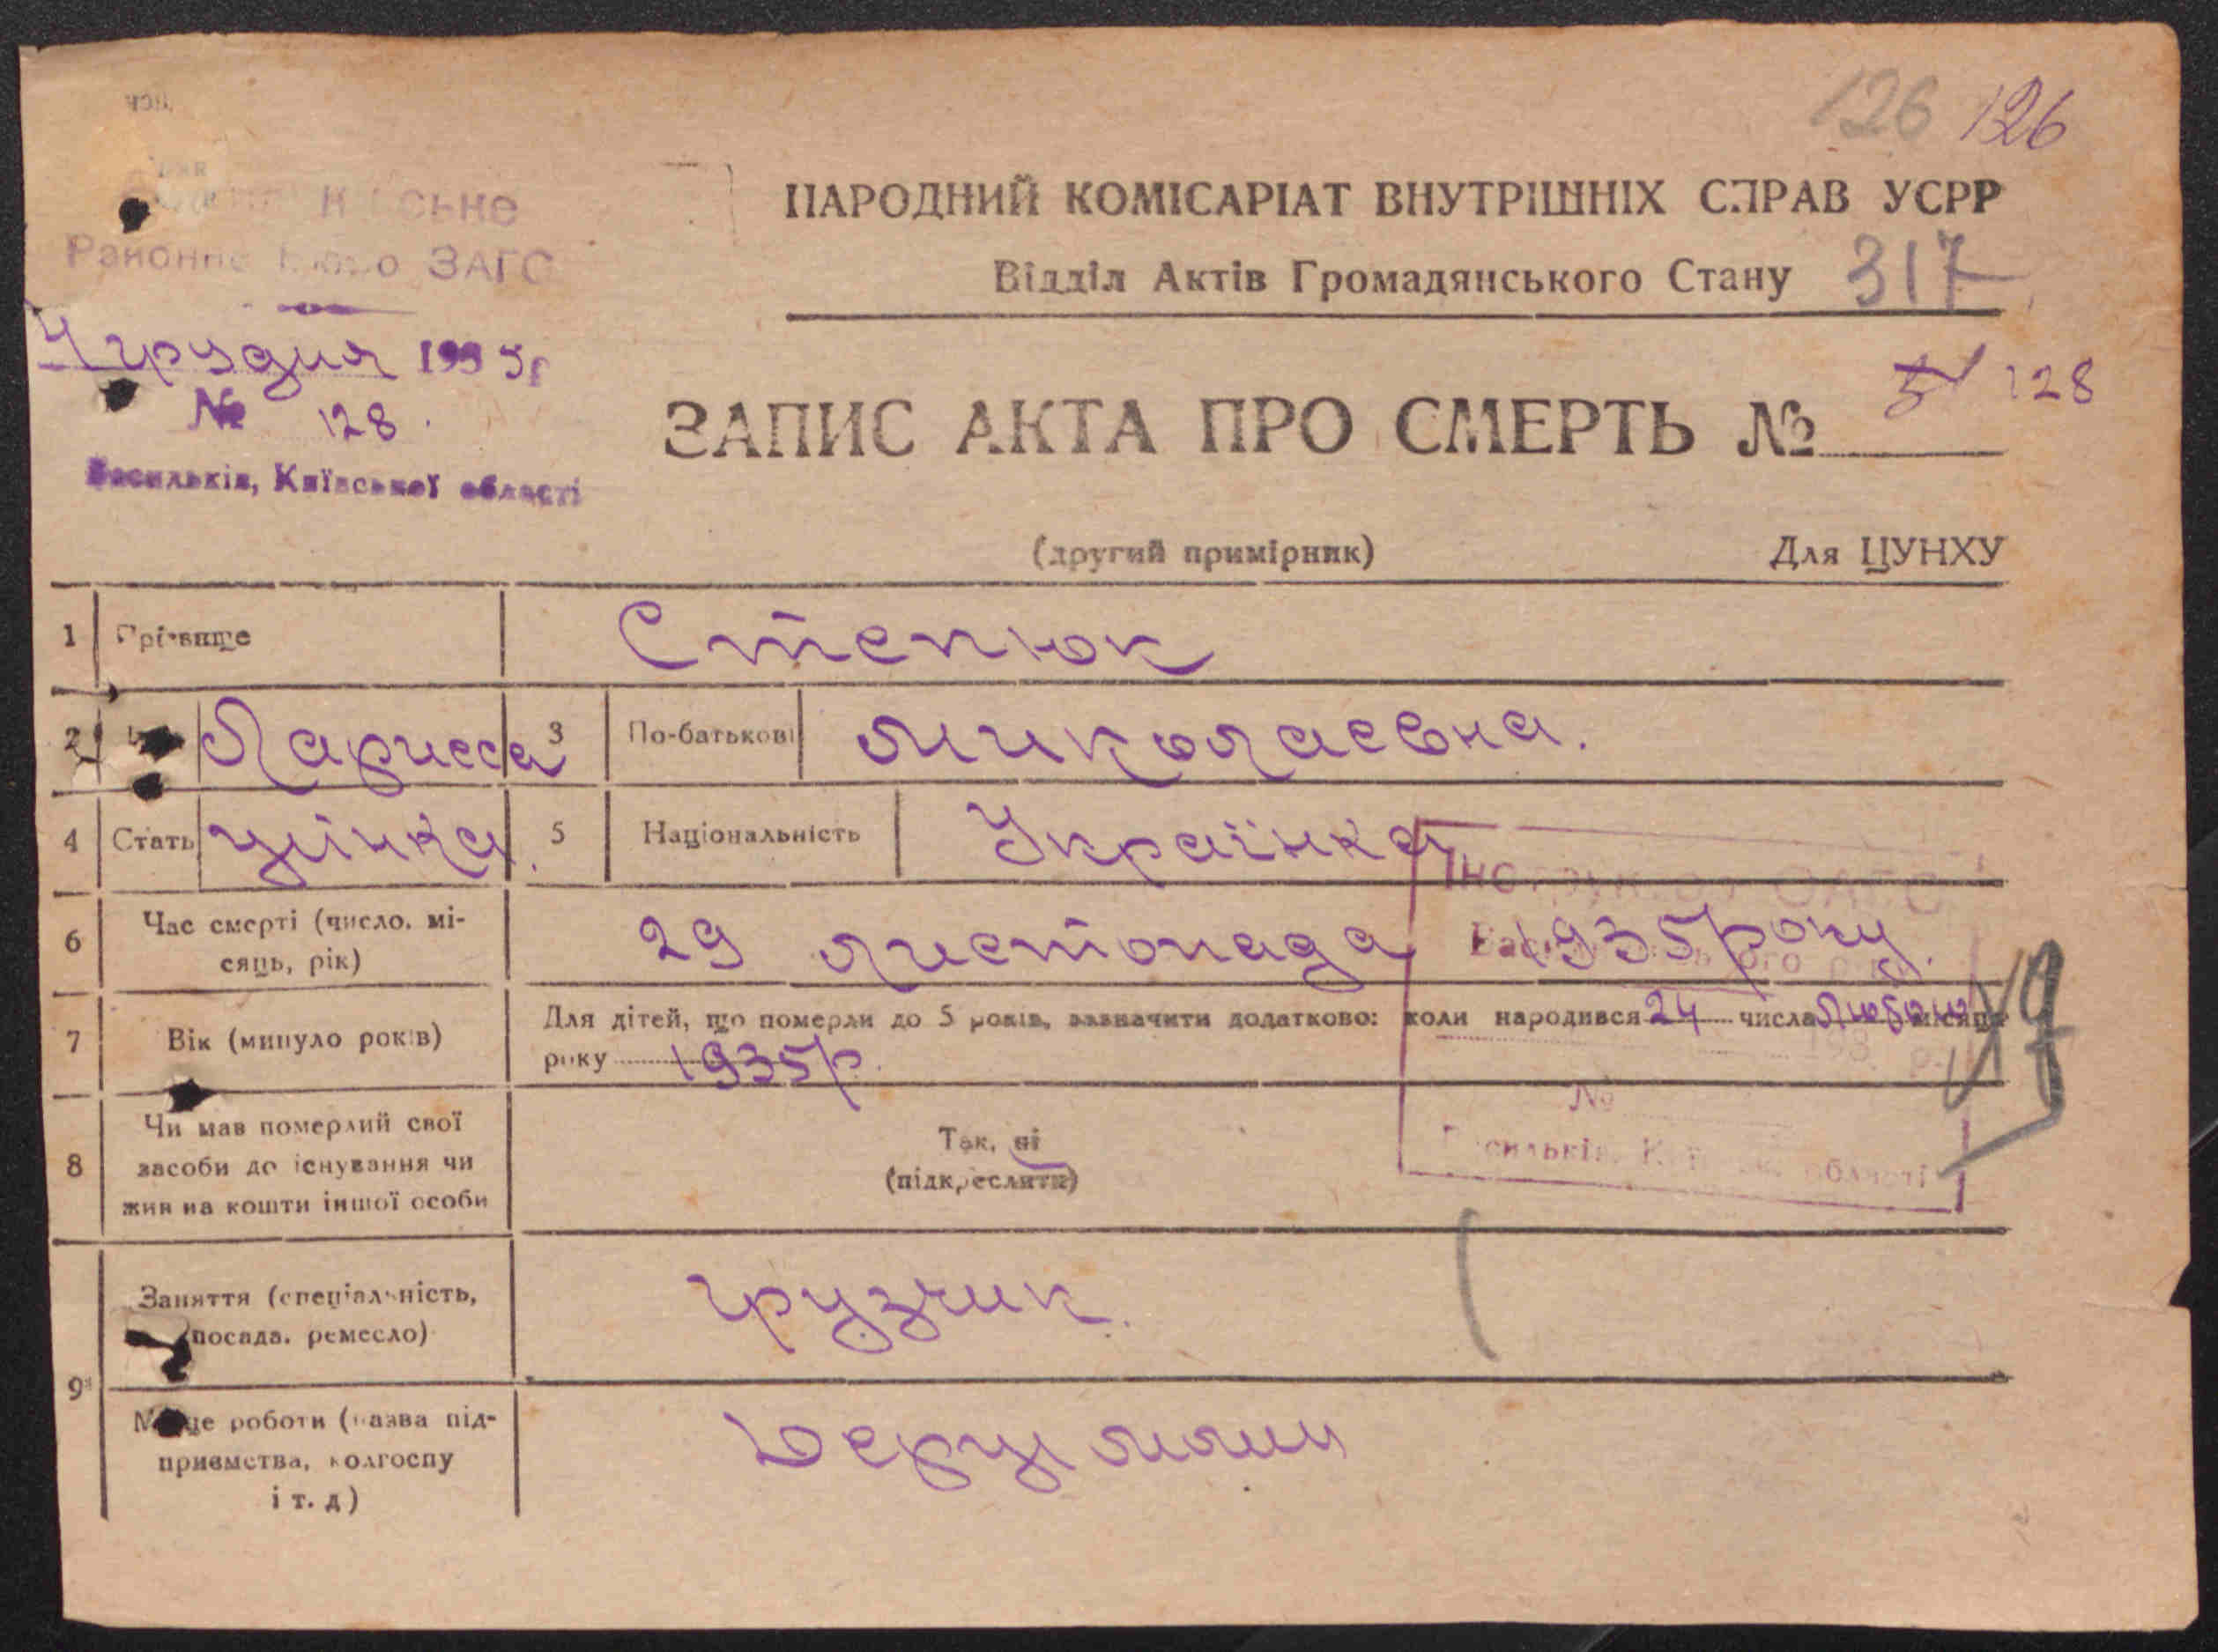 126 126
НАРОДНИЙ КОМІСАРІАТ ВНУТРІШНІХ СПРАВ УСРР
Відділ Актів Громадянського Стану 317
Районне Бюро ЗАГС
4 грудня 1935р
№ 128.
Васильків, Київської області
ЗАПИС АКТА ПРО СМЕРТЬ № 128
(другий примірник) Для ЦУНХУ
1 Прізвище Степюк
2 Ларисса 3 По-батькові Миколаевна.
4 Стать жінка. 5 Національність Українка
6 Час смерті (число, місяць, рік) 29 листопада 1935 року.
7 Вік (минуло років) Для дітей, що померли до 5 років, зазначити додатково: коли народився 24 числа місяця
року 1935р.
8 Чи мав померлий свої засоби до існування чи жив на кошти іншої особи Так, ні
(підкреслити)
№
Васильків, Київськ. області
9 Заняття (спеціальність, посада, ремесло) грузчик.
Місце роботи (назва підприємства, колгоспу і т. д) Держ млин